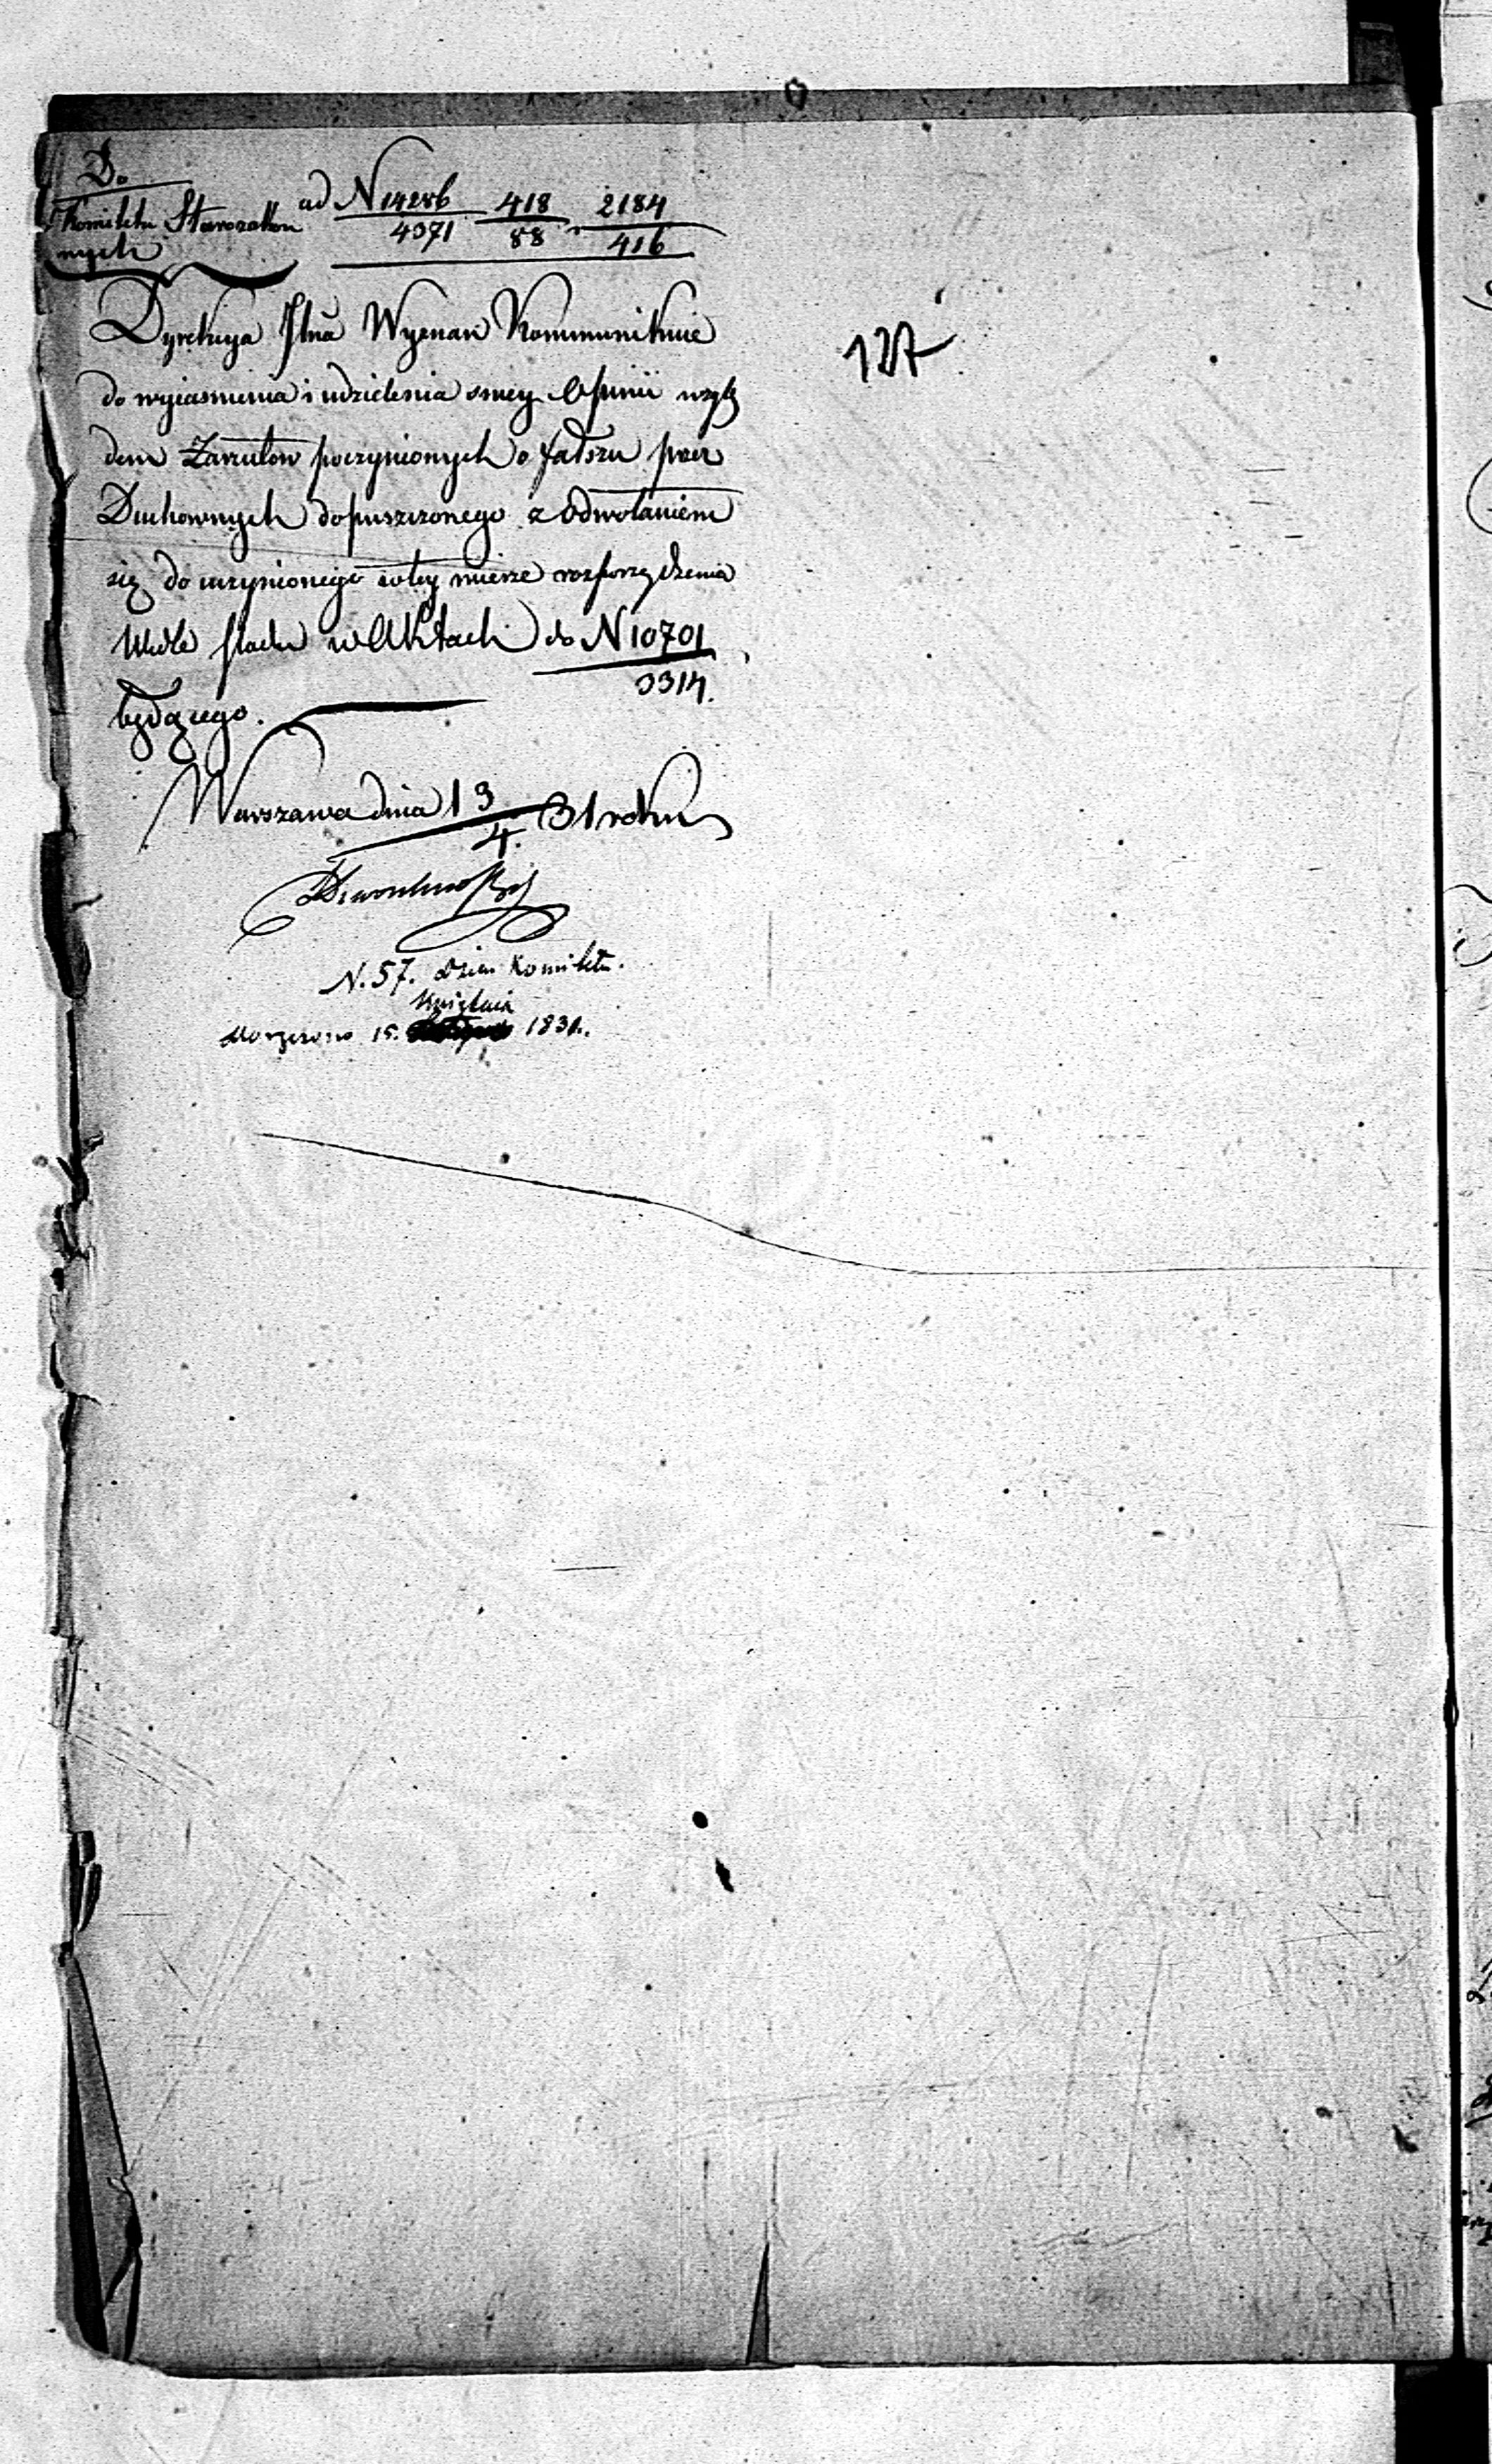 Do
Komitetu Starozakon
nych
ad N 14286/4371 418/88 2184/416
127
Dyrekcya Jlna Wyznań Kommunikuie
do wyiasnienia i udzielenia swey Opinii wzglę
dem Zarzutow poczynionych o fałszu przez
Duchownych dopuszczonego z Odwołaniem
się do uczynionego w tey mierze rozporządzenia
Wedle śladu w Aktach do N 10701/3314.
będącego.
Warszawa dnia 13/4. 31 roku
N. 57. Dzien. Komitetu.
Kwietnia
Doręczono 15. 1831.